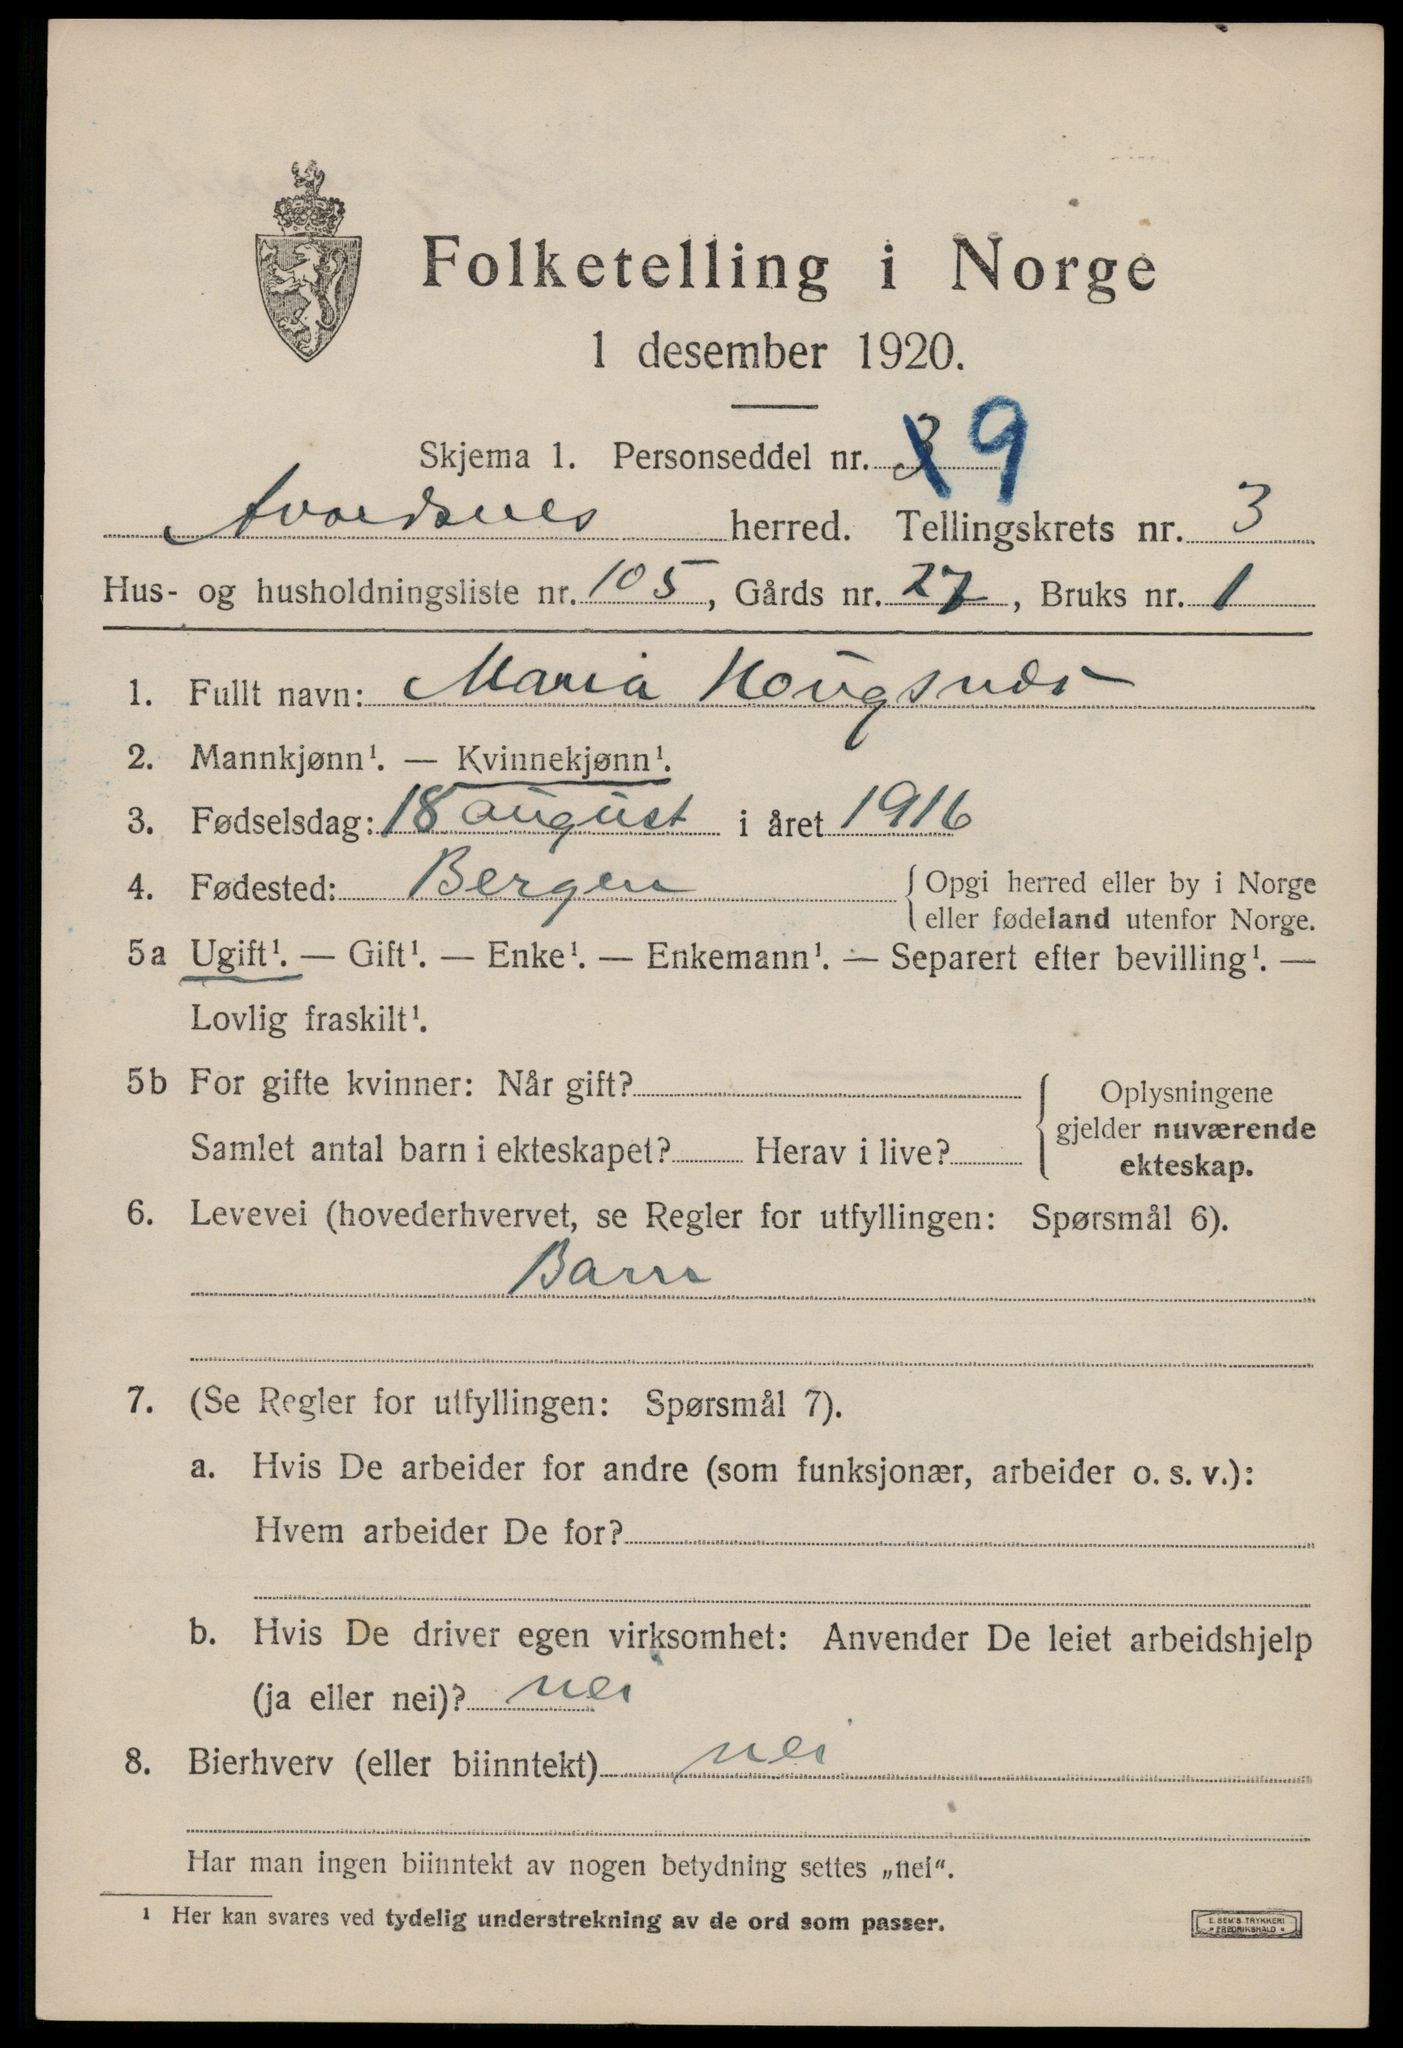 Folketelling i Norge
1 desember 1920.
Skjema 1. Personseddel nr. 3 9
Avaldsnes herred. Tellingskrets nr. 3
Hus- og husholdningsliste nr. 105, Gårds nr. 27, Bruks nr. 1
1. Fullt navn: Maria Hougsnæs
2. Mannkjønn¹. — Kvinnekjønn¹.
3. Fødselsdag: 18 august i året 1916
4. Fødested: Bergen { Opgi herred eller by i Norge
eller fødeland utenfor Norge.
5a Ugift¹. — Gift¹. — Enke¹. — Enkemann¹. — Separert efter bevilling¹. —
Lovlig fraskilt¹.
5b For gifte kvinner: Når gift? Oplysningene
gjelder nuværende
Samlet antal barn i ekteskapet? Herav i live? ekteskap.
6. Levevei (hovederhvervet, se Regler for utfyllingen: Spørsmål 6).
Barn
7. (Se Regler for utfyllingen: Spørsmål 7).
a. Hvis De arbeider for andre (som funksjonær, arbeider o. s. v.):
Hvem arbeider De for?
b. Hvis De driver egen virksomhet: Anvender De leiet arbeidshjelp
(ja eller nei)? nei
8. Bierhverv (eller biinntekt) nei
Har man ingen biinntekt av nogen betydning settes „nei“.
¹ Her kan svares ved tydelig understrekning av de ord som passer.
E. SEM'S TRYKKERI
* FREDRIKSHALD *